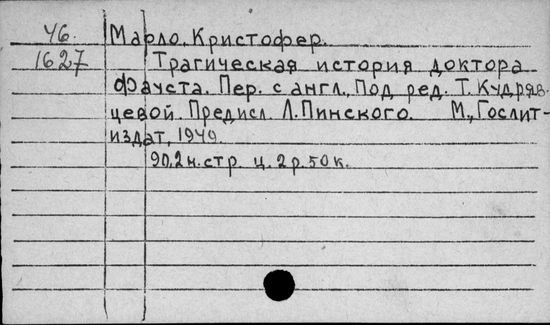 46. Марло, Кристофер.
1627 Трагическая история доктора
Фауста. Пер. с англ., Под ред. Т. Кудряв-
цевой. Предисл. Л. Пинского. М., Гослит-
издат, 1949.
90,2 н. стр. ц. 2 р. 50 к.